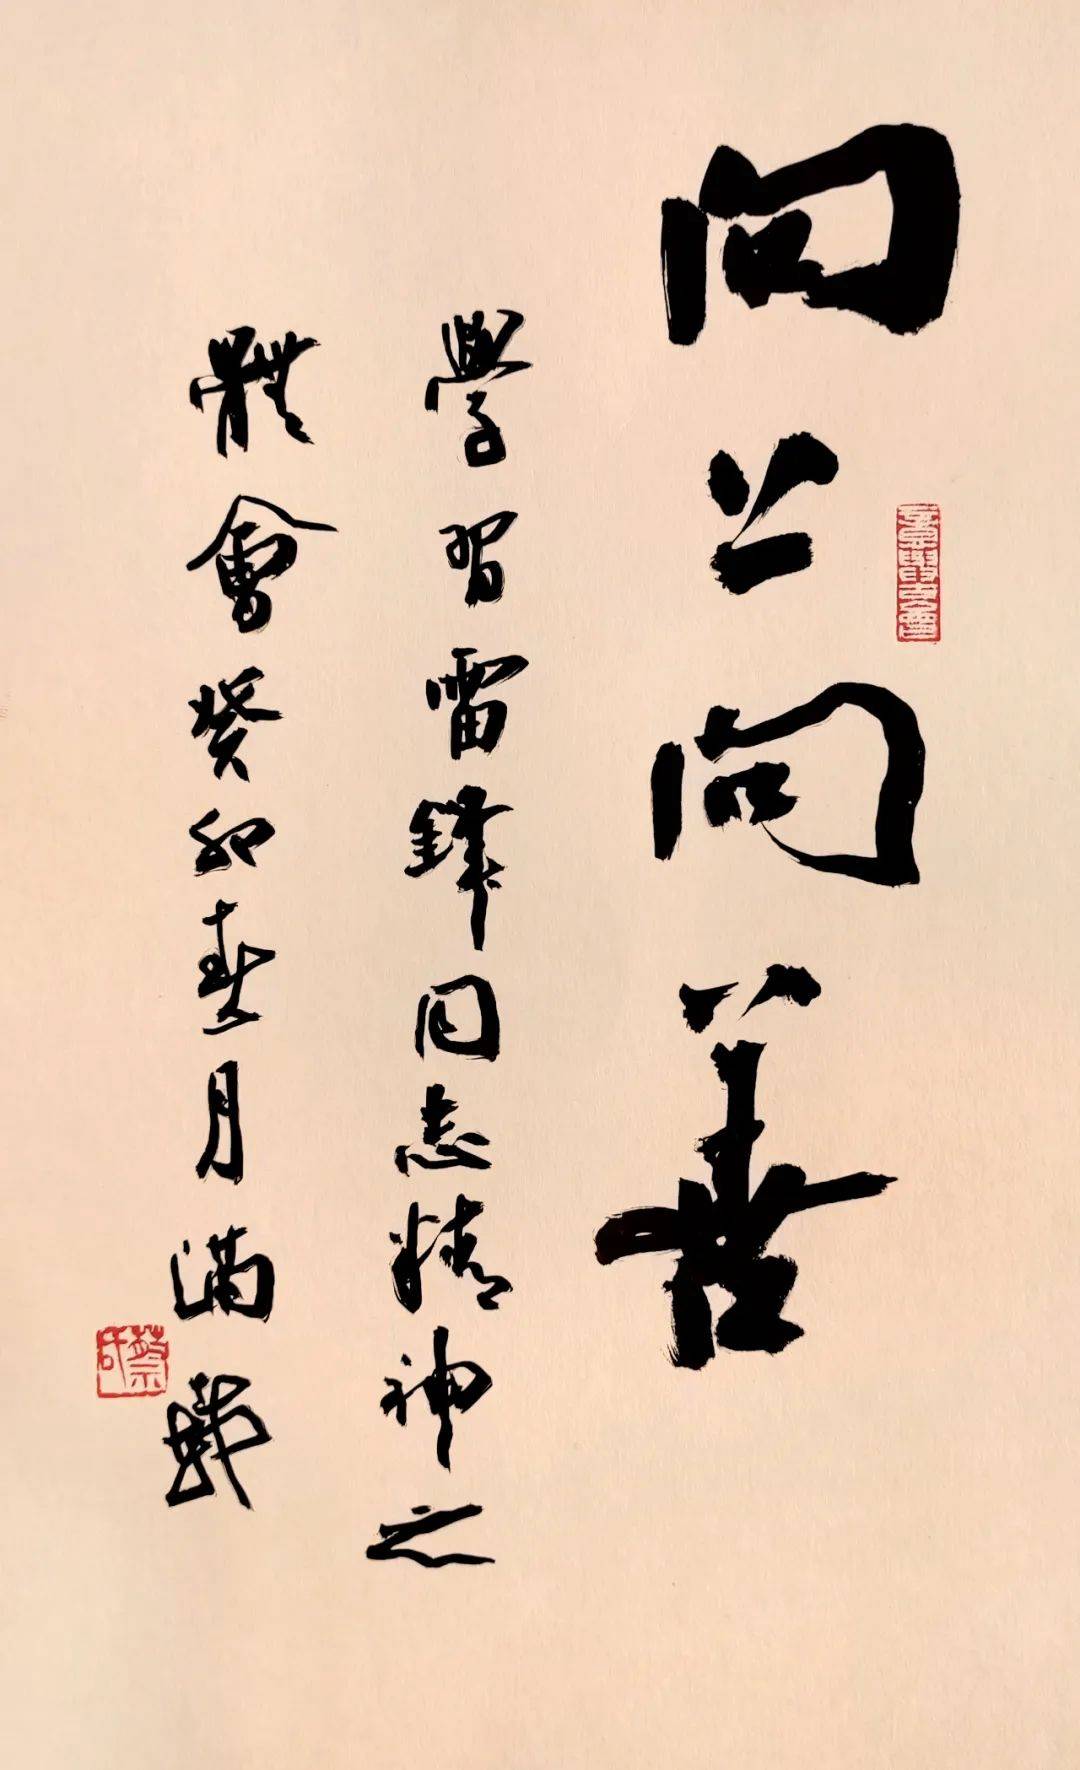 向上向善
學習雷鋒同志精神之
體會癸卯春月滿
蔡氏